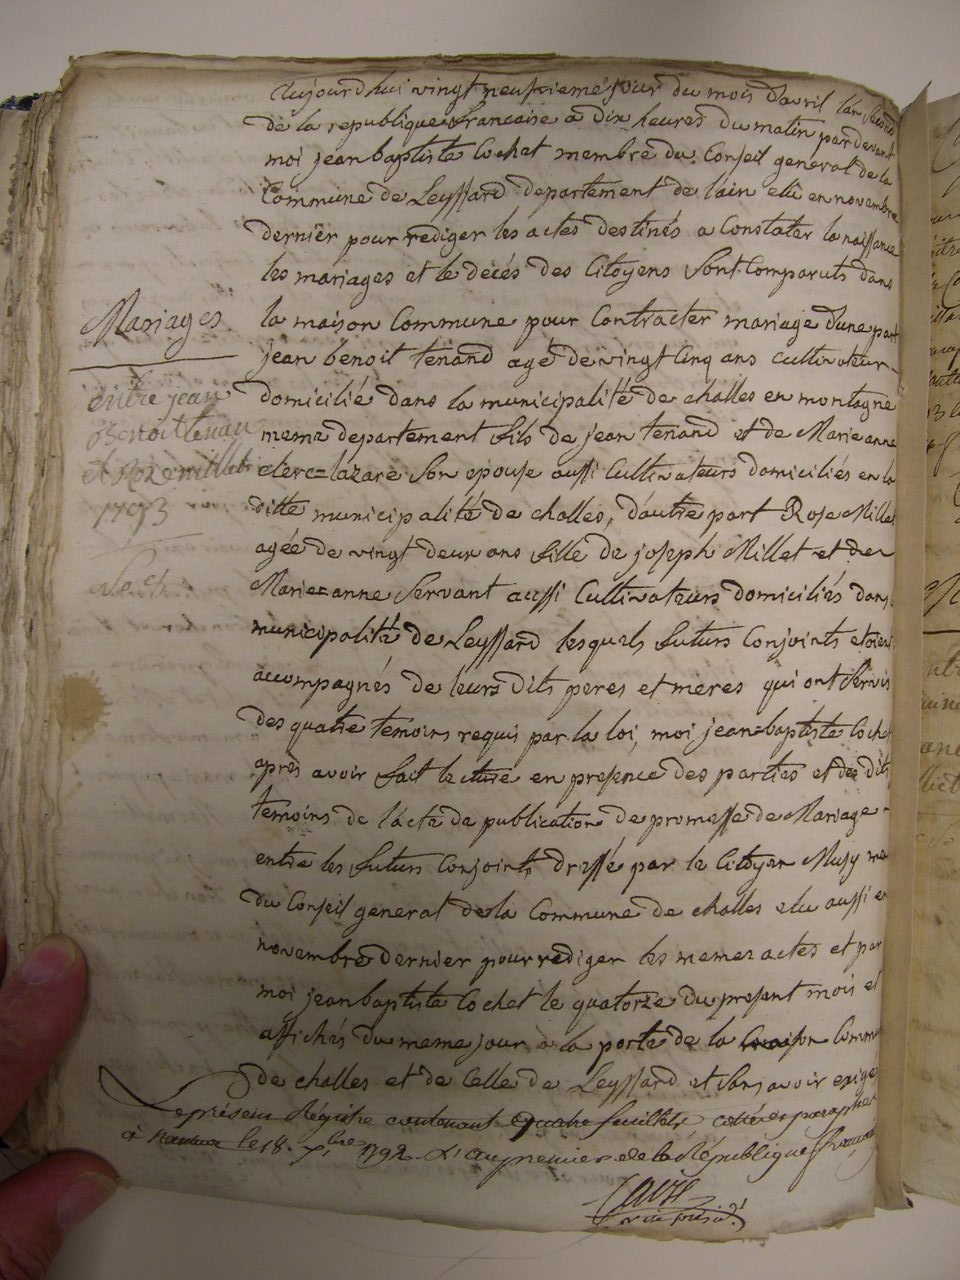 Aujourdhui vingt neuvieme jour du mois d'avril l'an Second
de la republique francaise a dix heures du matin pardevant
moi jean baptiste Cochet membre du Conseil general de la
Commune de Leyssard departement de l'ain elu en novembre
dernier pour rediger les actes destinés a Constater la naissance
les mariages et le décés des Citoyens Sont Comparuts dans
Mariages
la maison Commune pour Contracter mariage d'une part
jean benoit tenand agé de vingt Cinq ans cultivateur
entre jean
domicilié dans la municipalité de challes en montagne
Benoit tenan
meme departement fils de jean tenand et de Marie anne
et Roze millet
clerc=lazare Son epouse aussi Cultivateurs domiciliés en la
1793
ditte municipalité de challes, d'autre part Rose Millet
agée de vingt deux ans fille de joseph Millet et de
Marie=anne Servant aussi Cultivateurs domiciliés dans
municipalité de Leyssard lesquels futurs Conjoints etoient
accompagnés de leurs dits peres et meres qui ont Servis
des quatre témoins requis par la loi, moi jean=baptiste Cochet
après avoir fait lecture en presence des parties et des dits
temoins de l'acte de publication de promesse de Mariage
entre les futurs Conjoints dressé par le Citoyen Musy me
du Conseil general de la Commune de challes elu aussi en
novembre dernier pour rediger les memes actes et par
moi jean baptiste Cochet le quatorze du present mois et
affichés du meme jour à la porte de la maison Comm
de challes et de Celle de Leyssard et Sans avoir exigé
Le présent Régistre contenant quatre feuillets cottés et paraphés
à Nantua le 18. Xbre 1792 L'an premier de la République française